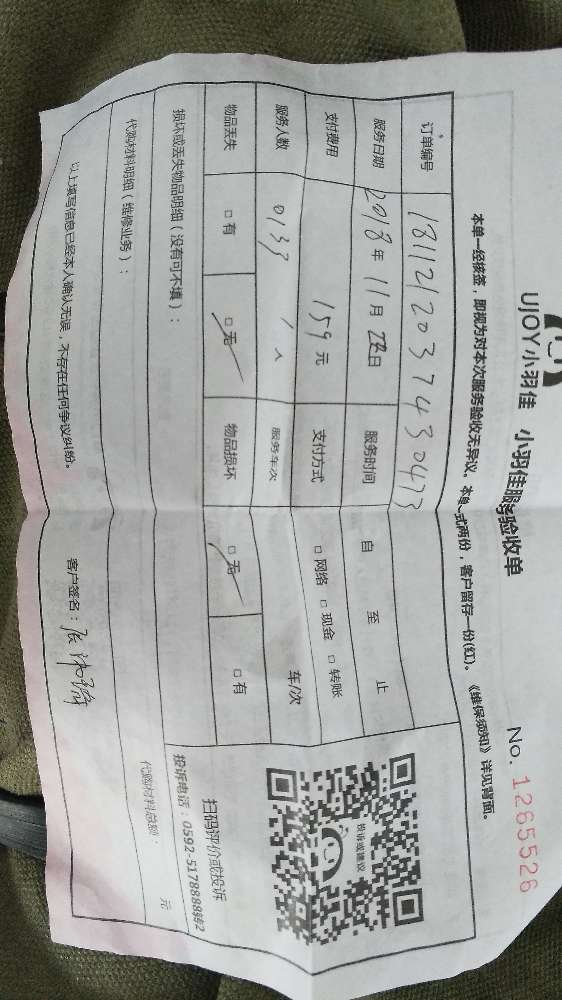 UJOY小羽佳 小羽佳服务验收单 No. 1265526
本单一经核签，即视为对本次服务验收无异议。本单一式两份，客户留存一份(红)。《维保须知》详见背面。
订单编号 1811212037430473
服务日期 2018年11月 日 服务时间 自 至 止
支付费用 159元 支付方式 □网络 □现金 □转账
服务人数 0133 1人 服务车次 车/次
物品丢失 □有 □无 物品损坏 □无 □有
损坏或丢失物品明细（没有可不填）：
代购材料明细（维修业务）：
代购材料总额： 元
投诉或建议
扫码评价或投诉
投诉电话：0592-5178888转2
以上填写信息已经本人确认无误，不存在任何争议纠纷。
客户签名：